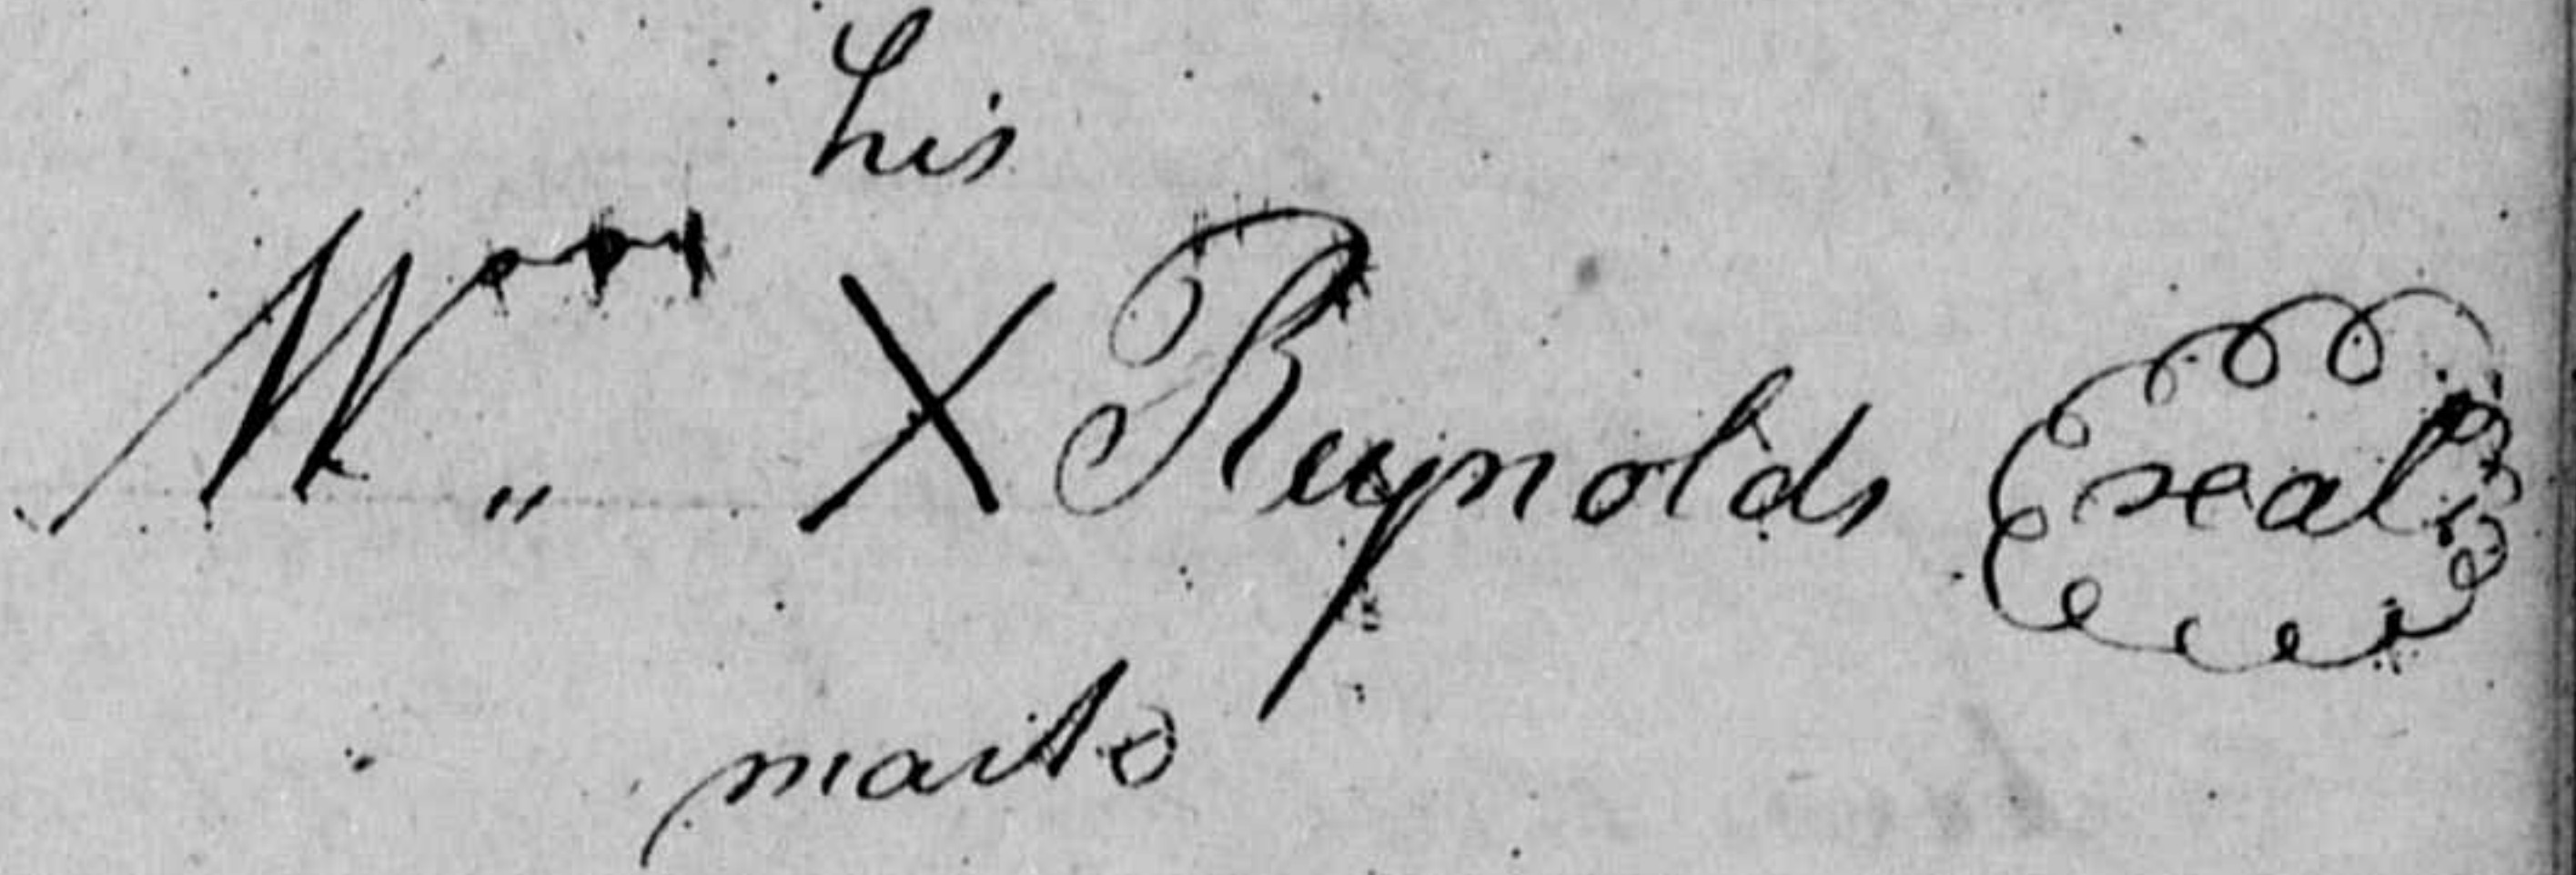 his
Wm X Reynolds seal
mark